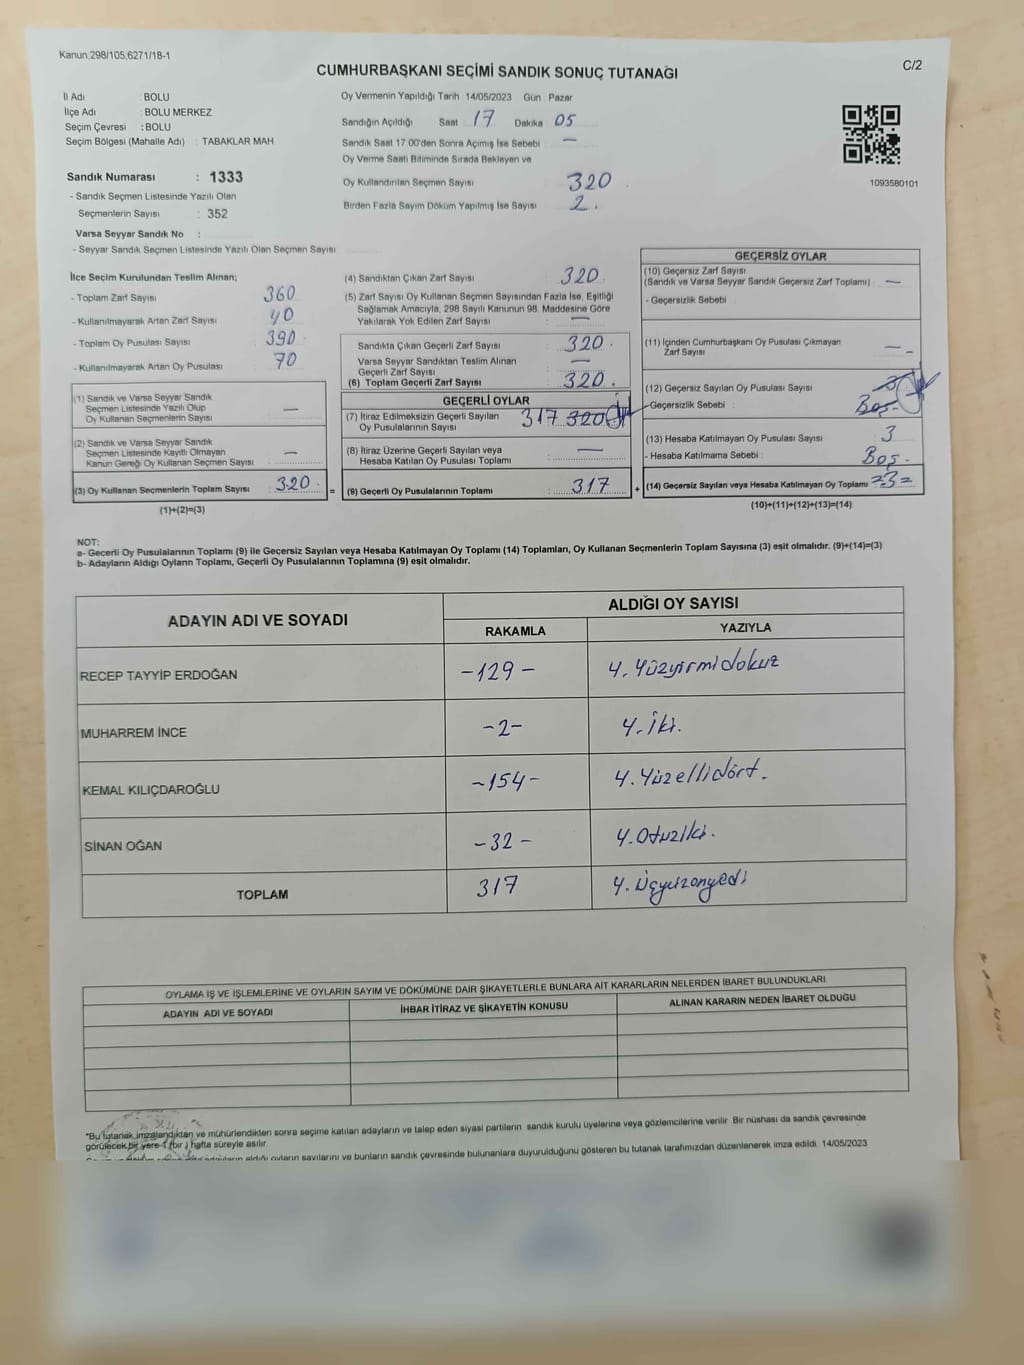 Kanun;298/105;6271/18-1
C/2
CUMHURBAŞKANI SEÇİMİ SANDIK SONUÇ TUTANAĞI
İl Adı : BOLU
İlçe Adı : BOLU MERKEZ
Seçim Çevresi : BOLU
Seçim Bölgesi (Mahalle Adı) : TABAKLAR MAH
Sandık Numarası : 1333
- Sandık Seçmen Listesinde Yazılı Olan
Seçmenlerin Sayısı : 352
Varsa Seyyar Sandık No :
- Seyyar Sandık Seçmen Listesinde Yazılı Olan Seçmen Sayısı
Oy Vermenin Yapıldığı Tarih 14/05/2023 Gün : Pazar
Sandığın Açıldığı Saat 17 Dakika 05
Sandık Saat 17.00'den Sonra Açımış İse Sebebi : —
Oy Verme Saati Bitiminde Sırada Bekleyen ve
Oy Kullandırılan Seçmen Sayısı 320
Birden Fazla Sayım Döküm Yapılmış İse Sayısı 2.
1093580101
İlçe Seçim Kurulundan Teslim Alınan;
- Toplam Zarf Sayısı 360
- Kullanılmayarak Artan Zarf Sayısı 40
- Toplam Oy Pusulası Sayısı 390
- Kullanılmayarak Artan Oy Pusulası 70
(1) Sandık ve Varsa Seyyar Sandık
Seçmen Listesinde Yazılı Olup
Oy Kullanan Seçmenlerin Sayısı : —
(2) Sandık ve Varsa Seyyar Sandık
Seçmen Listesinde Kayıtlı Olmayan
Kanun Gereği Oy Kullanan Seçmen Sayısı : —
(3) Oy Kullanan Seçmenlerin Toplam Sayısı : 320 =
(1)+(2)=(3)
(4) Sandıktan Çıkan Zarf Sayısı 320
(5) Zarf Sayısı Oy Kullanan Seçmen Sayısından Fazla İse, Eşitliği
Sağlamak Amacıyla, 298 Sayılı Kanunun 98. Maddesine Göre
Yakılarak Yok Edilen Zarf Sayısı : —
Sandıkta Çıkan Geçerli Zarf Sayısı : 320.
Varsa Seyyar Sandıktan Teslim Alınan
Geçerli Zarf Sayısı : —
(6) Toplam Geçerli Zarf Sayısı : 320.
GEÇERLİ OYLAR
(7) İtiraz Edilmeksizin Geçerli Sayılan
Oy Pusulalarının Sayısı 317 320
(8) İtiraz Üzerine Geçerli Sayılan veya
Hesaba Katılan Oy Pusulası Toplamı : —
(9) Geçerli Oy Pusulalarının Toplamı : 317 +
GEÇERSİZ OYLAR
(10) Geçersiz Zarf Sayısı
(Sandık ve Varsa Seyyar Sandık Geçersiz Zarf Toplamı) : —
- Geçersizlik Sebebi :
(11) İçinden Cumhurbaşkanı Oy Pusulası Çıkmayan
Zarf Sayısı —
(12) Geçersiz Sayılan Oy Pusulası Sayısı 3
-Geçersizlik Sebebi : Boş
(13) Hesaba Katılmayan Oy Pusulası Sayısı 3
- Hesaba Katılmama Sebebi : Boş.
(14) Geçersiz Sayılan veya Hesaba Katılmayan Oy Toplamı =3=
(10)+(11)+(12)+(13)=(14)
NOT:
a- Geçerli Oy Pusulalarının Toplamı (9) ile Geçersiz Sayılan veya Hesaba Katılmayan Oy Toplamı (14) Toplamları, Oy Kullanan Seçmenlerin Toplam Sayısına (3) eşit olmalıdır. (9)+(14)=(3)
b- Adayların Aldığı Oyların Toplamı, Geçerli Oy Pusulalarının Toplamına (9) eşit olmalıdır.
ADAYIN ADI VE SOYADI ALDIĞI OY SAYISI
RAKAMLA YAZIYLA
RECEP TAYYİP ERDOĞAN -129- Y. Yüzyirmidokuz
MUHARREM İNCE -2- Y. İki.
KEMAL KILIÇDAROĞLU -154- Y. Yüzellidört.
SİNAN OĞAN -32- Y. Otuziki.
TOPLAM 317 Y. Üçyüzonyedi
OYLAMA İŞ VE İŞLEMLERİNE VE OYLARIN SAYIM VE DÖKÜMÜNE DAİR ŞİKAYETLERLE BUNLARA AİT KARARLARIN NELERDEN İBARET BULUNDUKLARI
ADAYIN ADI VE SOYADI İHBAR İTİRAZ VE ŞİKAYETİN KONUSU ALINAN KARARIN NEDEN İBARET OLDUĞU
*Bu tutanak imzalandıktan ve mühürlendikten sonra seçime katılan adayların ve talep eden siyasi partilerin sandık kurulu üyelerine veya gözlemcilerine verilir. Bir nüshası da sandık çevresinde
görülecek bir yere 1 (bir) hafta süreyle asılır.
aldığı oyların sayılarını ve bunların sandık çevresinde bulunanlara duyurulduğunu gösteren bu tutanak tarafımızdan düzenlenerek imza edildi. 14/05/2023